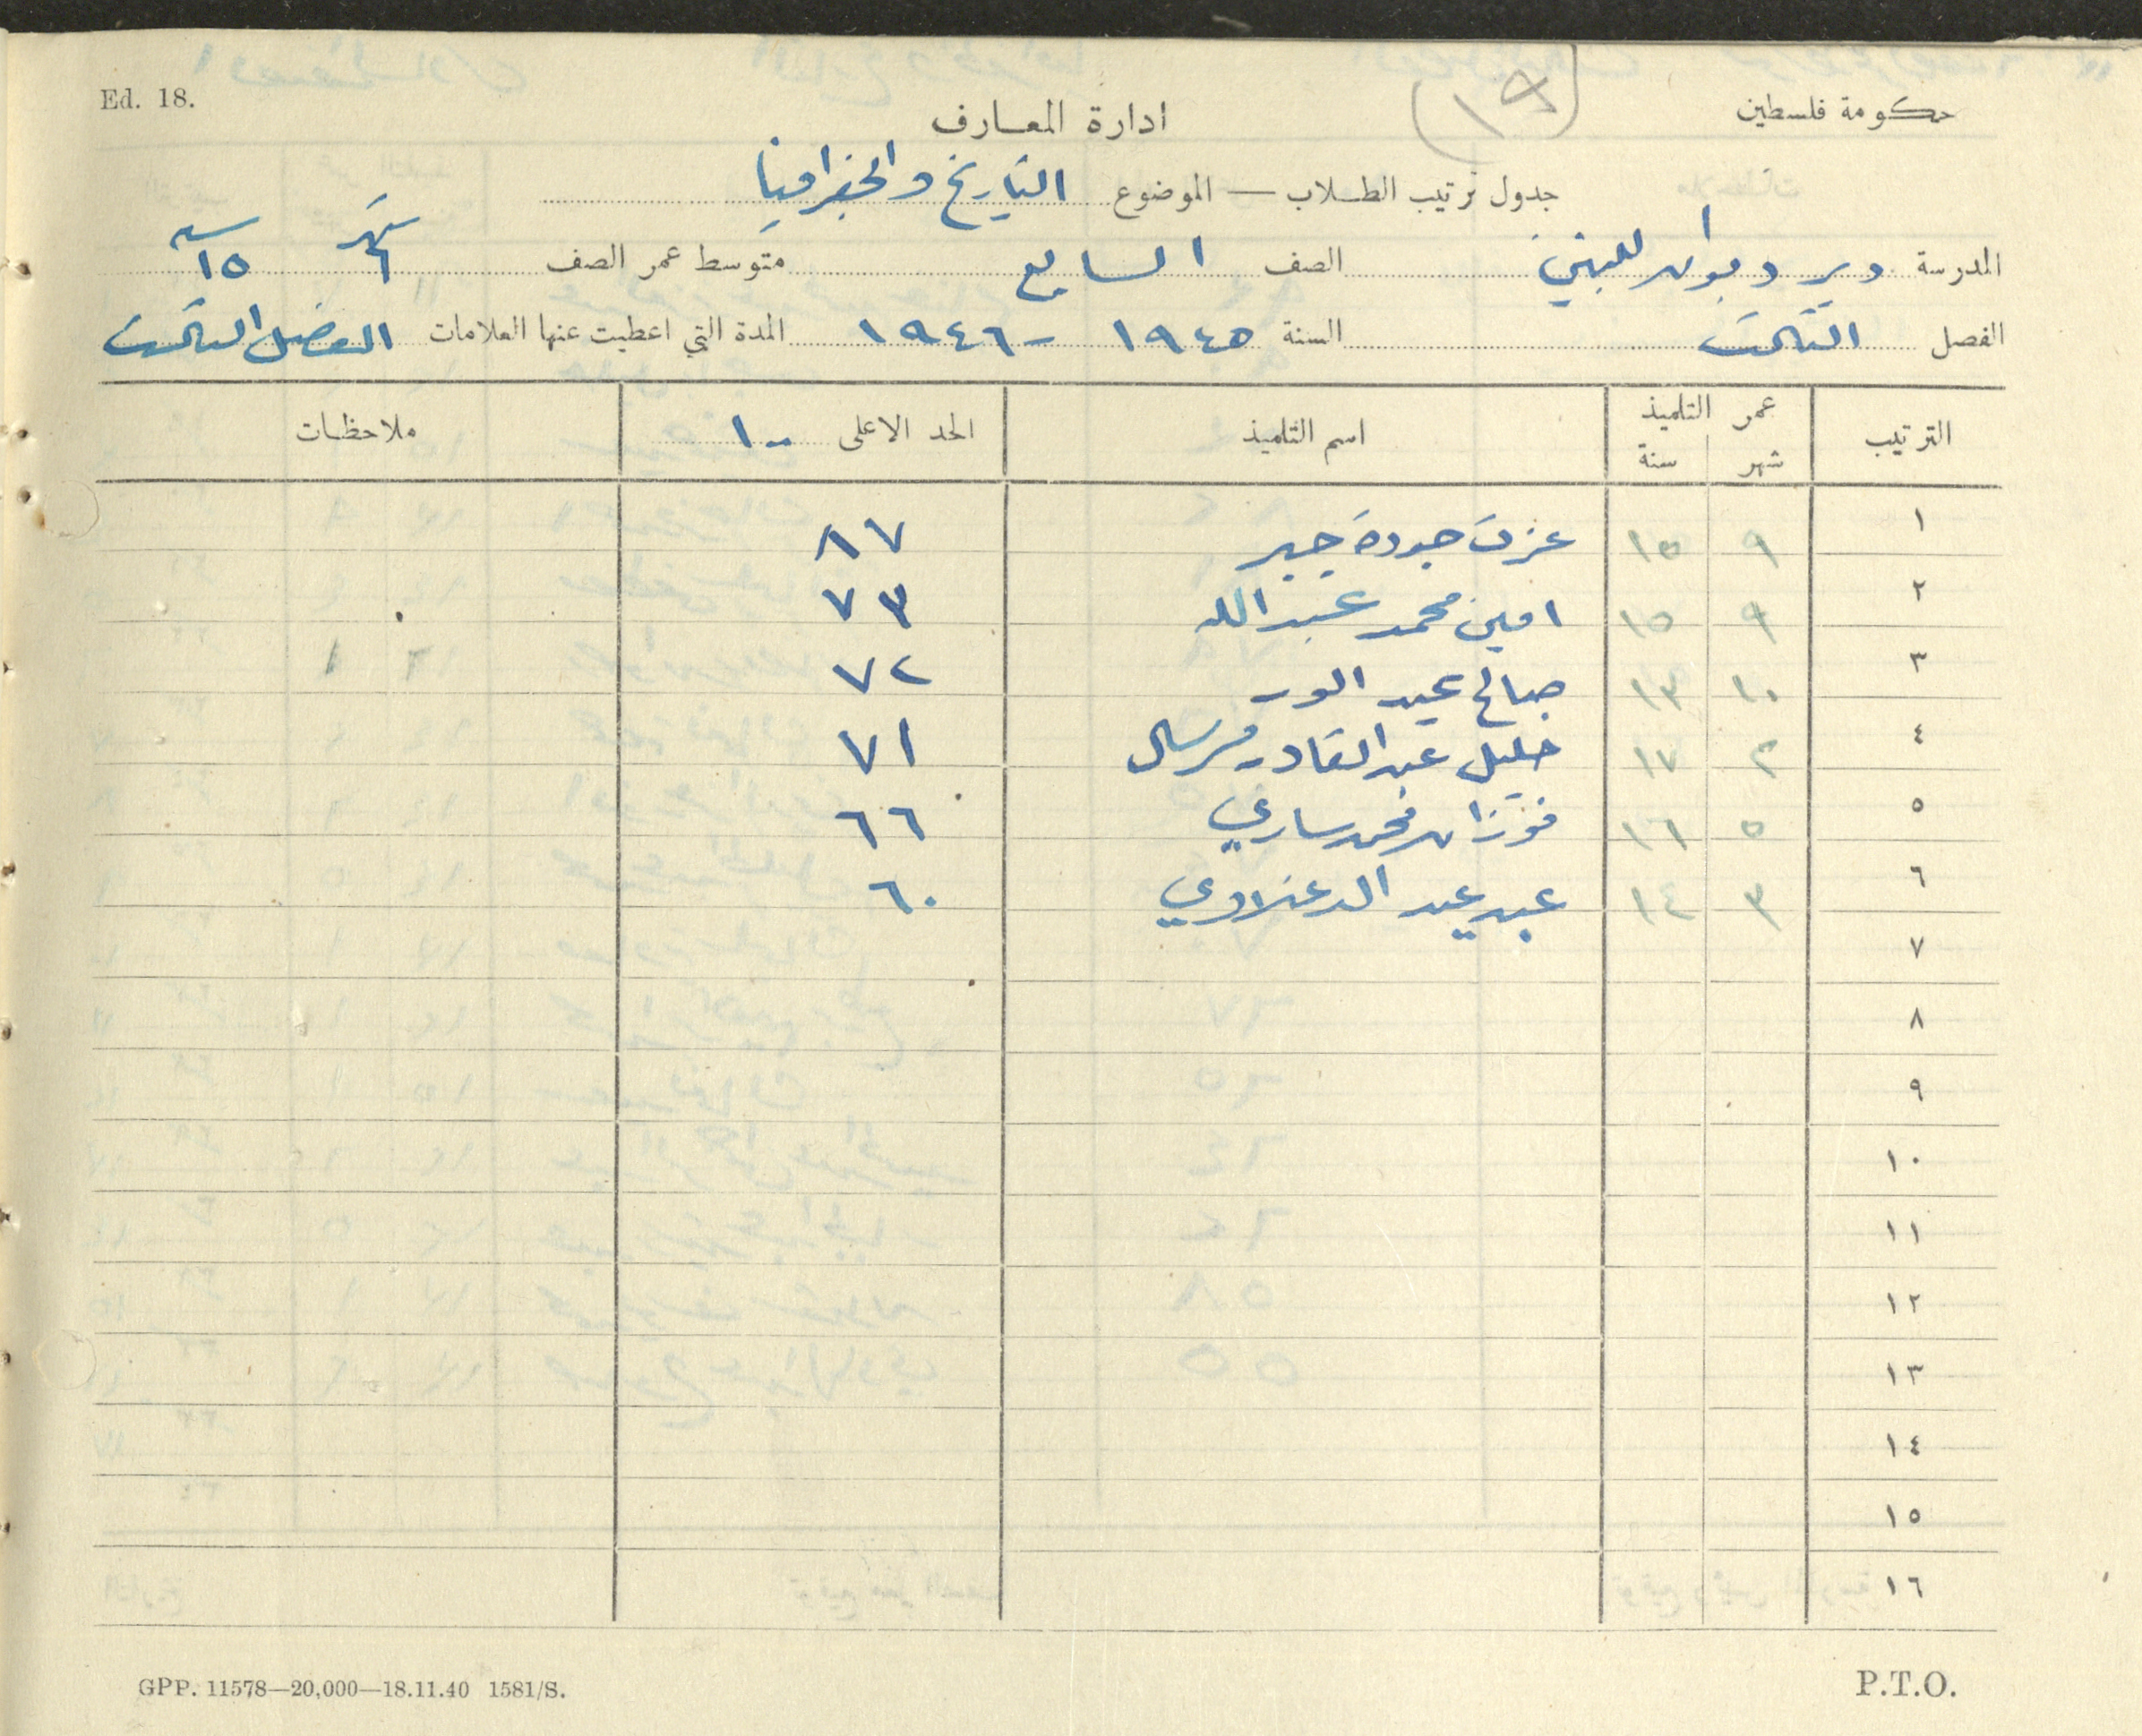 Ed. 18.
(١٩)
حكومة فلسطين
ادارة المعارف
جدول ترتيب الطلاب — الموضوع التاريخ والجغرافيا
المدرسة دير دبوان للبنين الصف السابع متوسط عمر الصف شهر ٦ سنة ١٥
الفصل الثالث السنة ١٩٤٥ - ١٩٤٦ المدة التي اعطيت عنها العلامات الفصل الثالث
الترتيب عمر التلميذ اسم التلميذ الحد الاعلى ١٠٠ ملاحظات
شهر سنة
١ ٩ ١٥ عزت جودة جبر ٨٧
٢ ٩ ١٥ امين محمد عبدالله ٧٣
٣ ١٠ ١٣ صالح عبد ٧٢
٤ ٢ ١٧ خليل عبد القادر ٧١
٥ ٥ ١٦ فوزان محمد ساري ٦٦
٦ ٣ ١٤ عبد ٦٠
٧
٨
٩
١٠
١١
١٢
١٣
١٤
١٥
١٦
GPP. 11578—20,000—18.11.40 1581/S.
P.T.O.